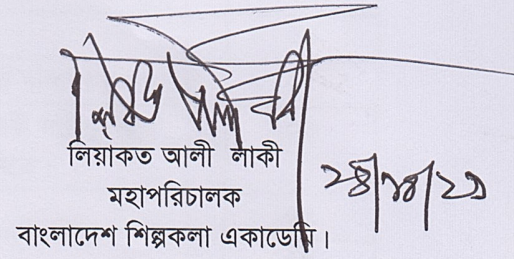 লিয়াকত আলী লাকী
মহাপরিচালক
বাংলাদেশ শিল্পকলা একাডেমি।